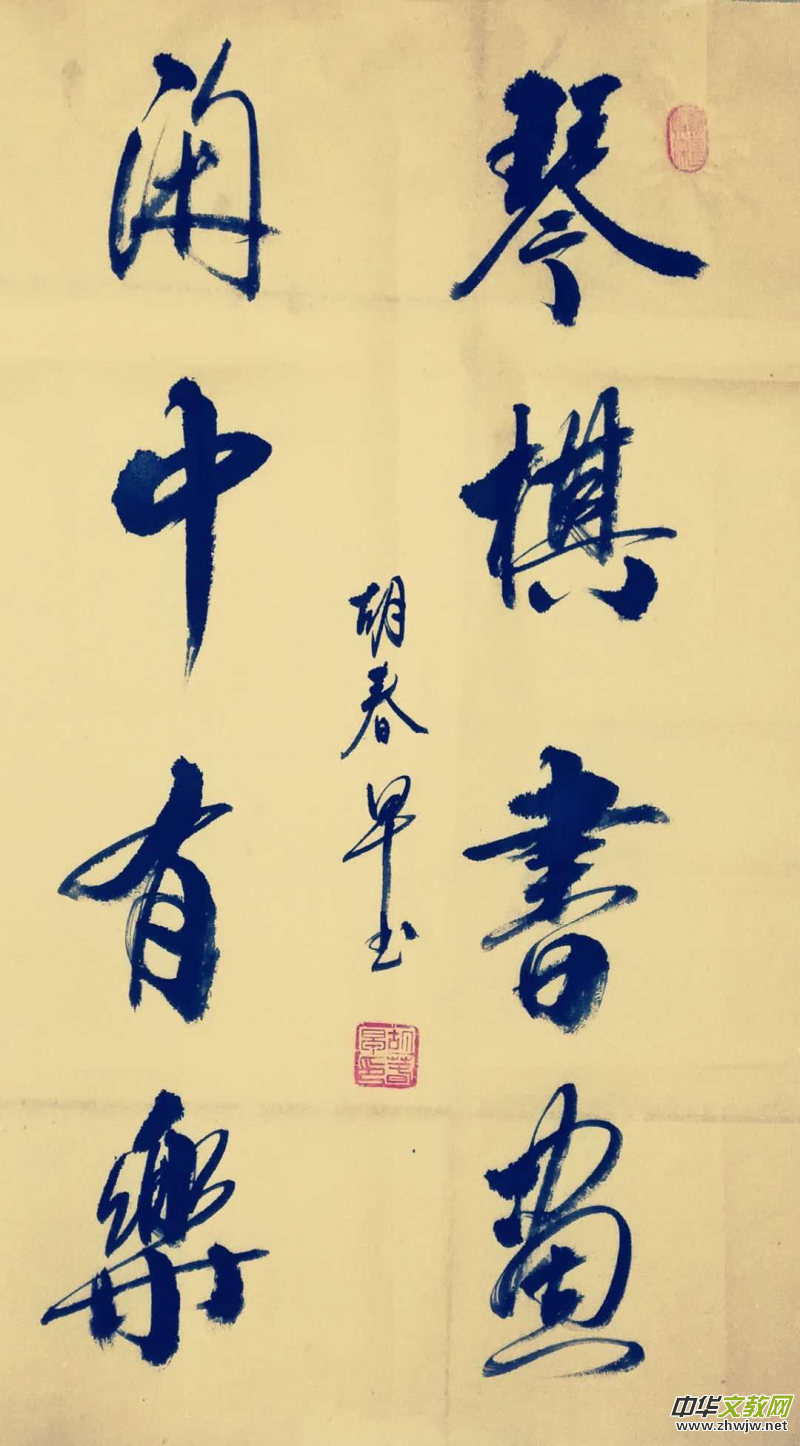 琴棋書畫
閑中有樂
胡春早书
胡春早印
中华文教网
www.zhwjw.net